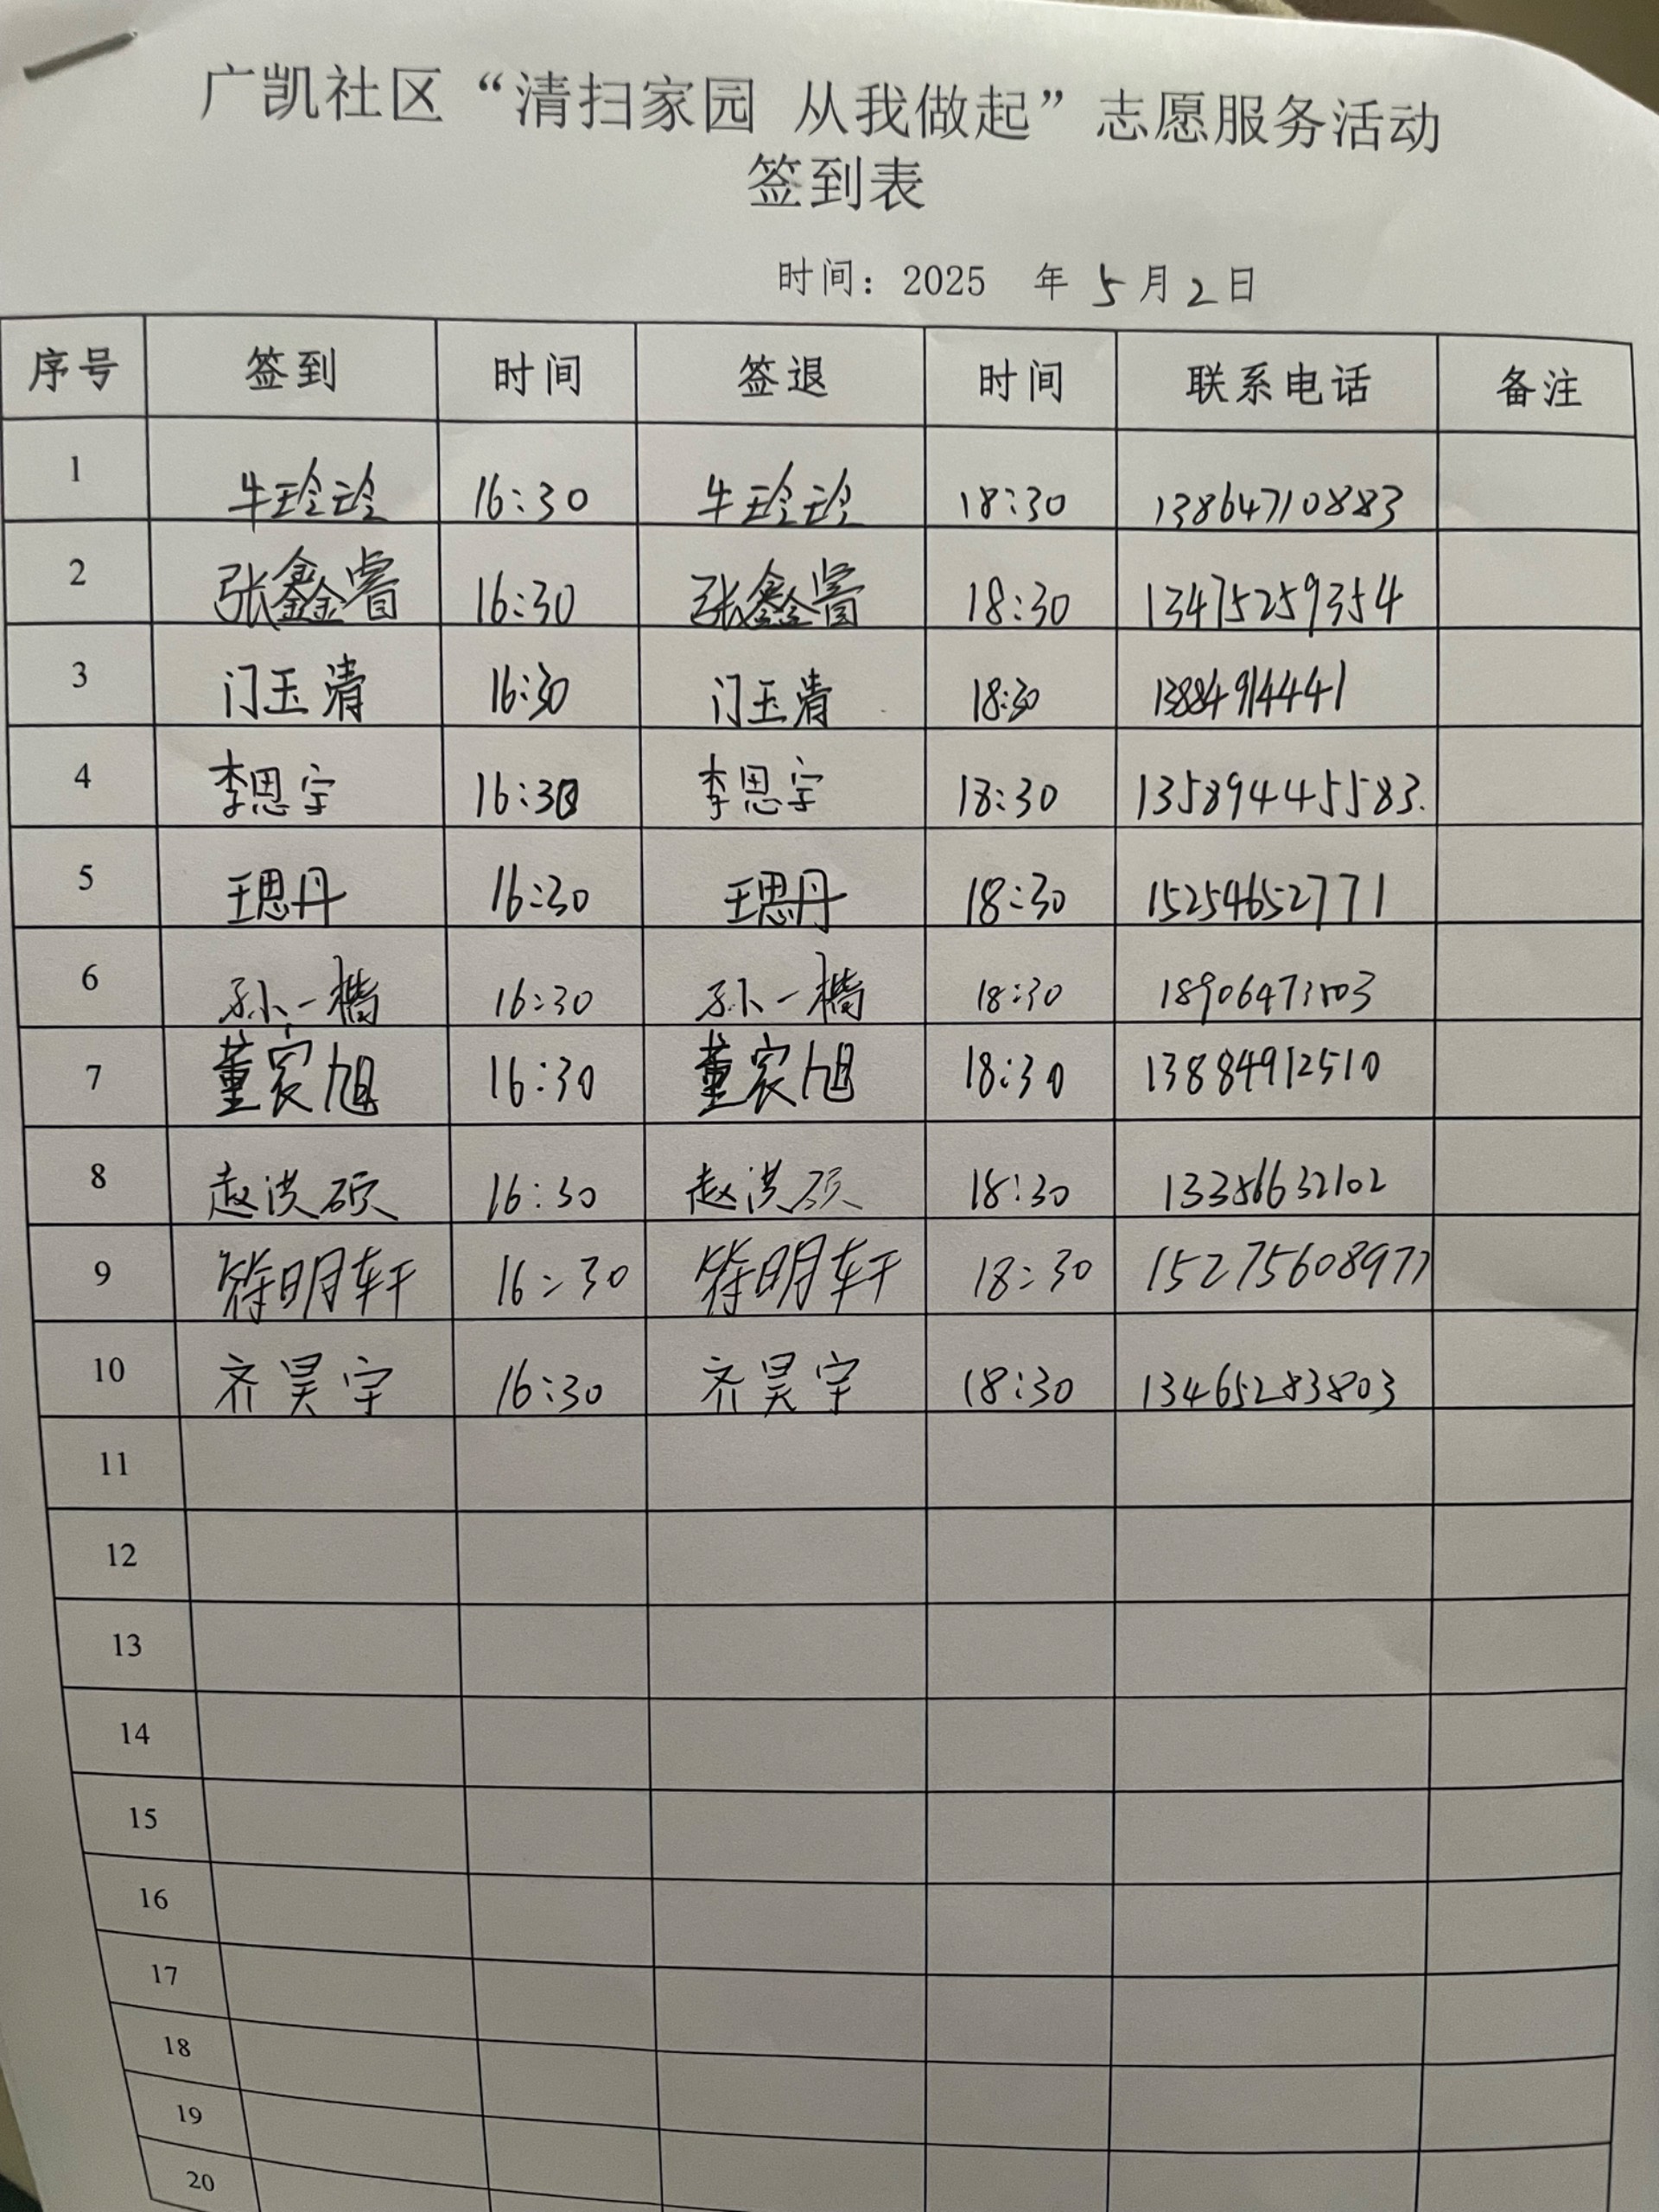 广凯社区“清扫家园 从我做起”志愿服务活动
签到表
时间：2025 年 5 月 2 日
序号 签到 时间 签退 时间 联系电话 备注
1 牛玲玲 16:30 牛玲玲 18:30 13864710883
2 张鑫睿 16:30 张鑫睿 18:30 13475259354
3 门玉清 16:30 门玉清 18:30 13884914441
4 李思宇 16:30 李思宇 18:30 135894445583.
5 王思丹 16:30 王思丹 18:30 15254652771
6 孙一 16:30 孙一 18:30
7 董宸旭 16:30 董宸旭 18:30 13884912510
8 赵洪硕 16:30 赵洪硕 18:30
9 徐明轩 16:30 徐明轩 18:30 15275608977
10 齐昊宇 16:30 齐昊宇 18:30 13465283803
11
12
13
14
15
16
17
18
19
20